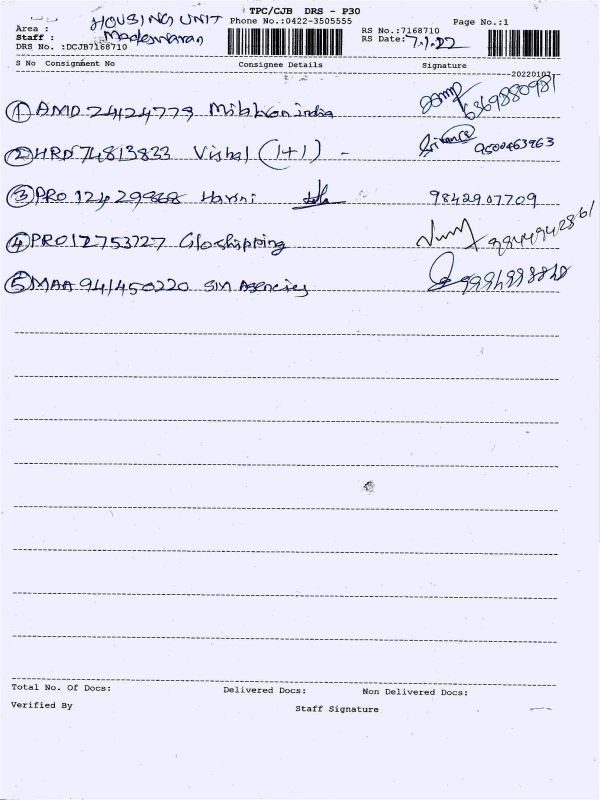 TPC/CJB DRS - P30
Area : HOUSING UNIT Phone No.:0422-3505555 Page No.:1
Staff : Madeswaran RS No.:7168710
DRS No. :DCJB7168710 RS Date: 7.1.22
S No Consignment No Consignee Details Signature
20220107
1 AMD 24124779 india 6369880981
2 HRD 74813833 Vishal (1+1) - 9500463963
3 PRO 12429868 Harini 9842907709
4 PRO12753727 Gloshipping 9844942861
5 MAA 941450220 SM Agencies
Total No. Of Docs: Delivered Docs: Non Delivered Docs:
Verified By Staff Signature